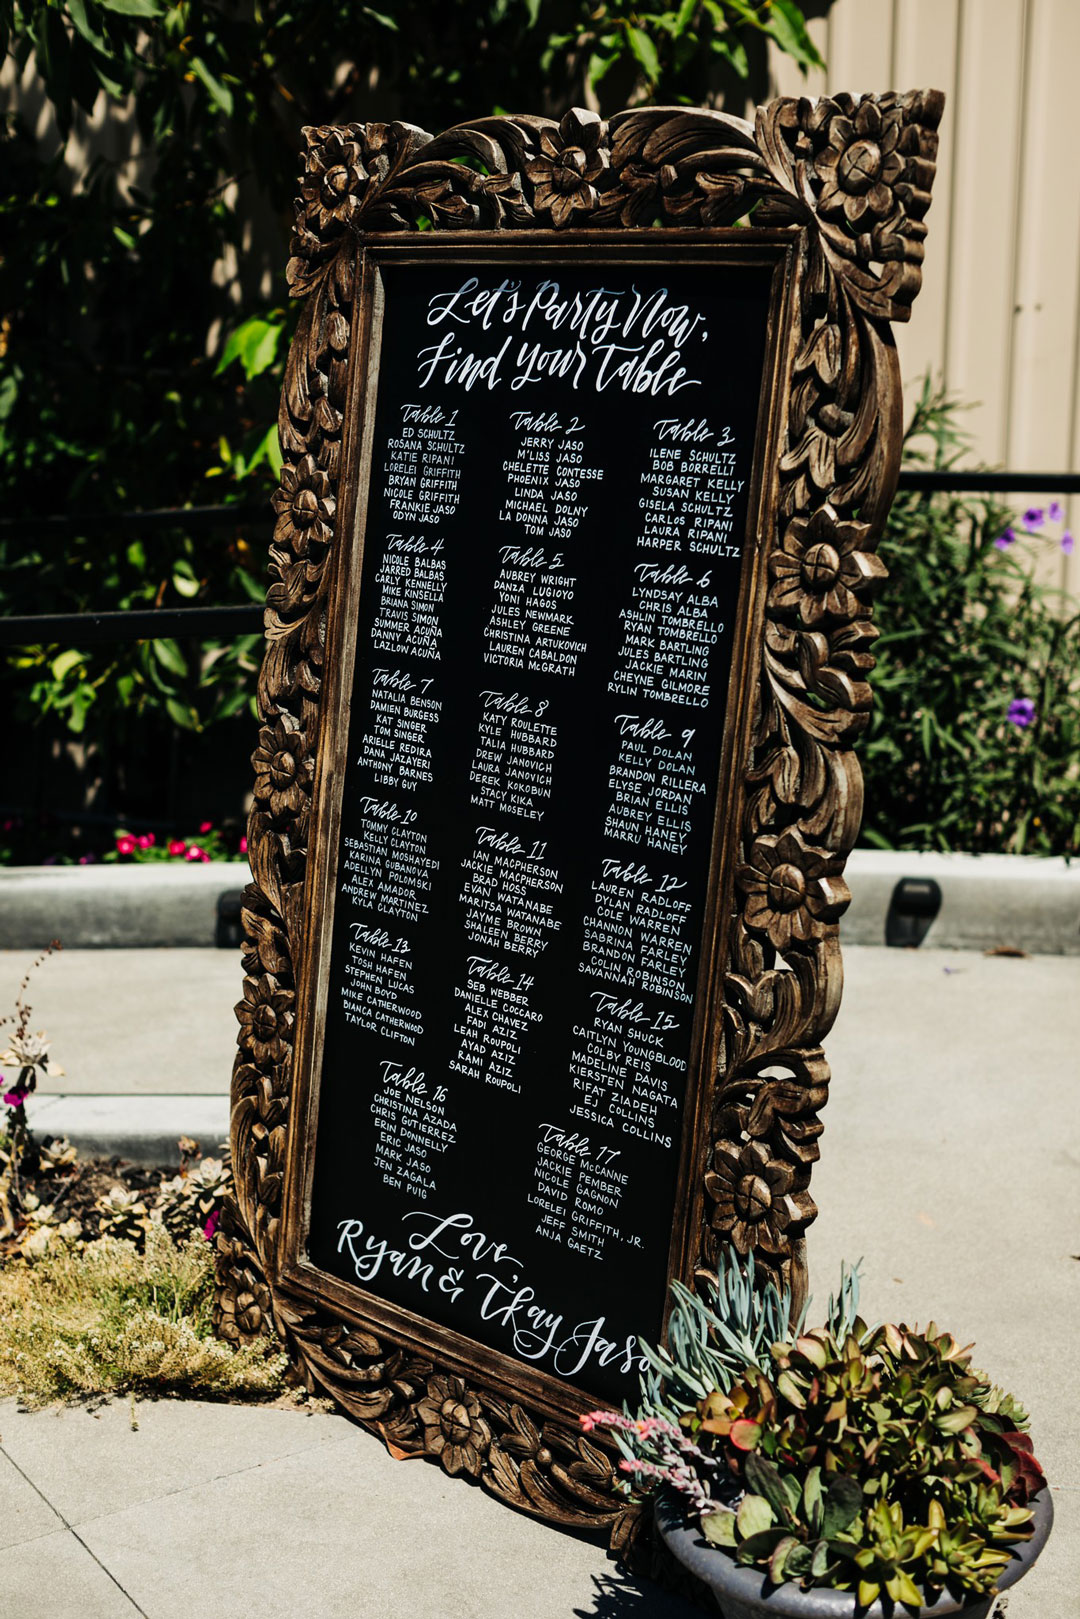 Let's Party Now,
Find Your Table
Table 1
ED SCHULTZ
ROSANA SCHULTZ
KATIE RIPANI
LORELEI GRIFFITH
BRYAN GRIFFITH
NICOLE GRIFFITH
FRANKIE JASO
ODYN JASO
Table 2
JERRY JASO
M'LISS JASO
CHELETTE CONTESSE
PHOENIX JASO
LINDA JASO
MICHAEL DOLNY
LA DONNA JASO
TOM JASO
Table 3
ILENE SCHULTZ
BOB BORRELLI
MARGARET KELLY
SUSAN KELLY
GISELA SCHULTZ
CARLOS RIPANI
LAURA RIPANI
HARPER SCHULTZ
Table 4
NICOLE BALBAS
JARRED BALBAS
CARLY KENNELLY
MIKE KINSELLA
BRIANA SIMON
TRAVIS SIMON
SUMMER ACUÑA
DANNY ACUÑA
LAZLOW ACUÑA
Table 5
AUBREY WRIGHT
DANZA LUGIOYO
YONI HAGOS
JULES NEWMARK
ASHLEY GREENE
CHRISTINA ARTUKOVICH
LAUREN CABALDON
VICTORIA McGRATH
Table 6
LYNDSAY ALBA
CHRIS ALBA
ASHLIN TOMBRELLO
RYAN TOMBRELLO
MARK BARTLING
JULES BARTLING
JACKIE MARIN
CHEYNE GILMORE
RYLIN TOMBRELLO
Table 7
NATALIA BENSON
DAMIEN BURGESS
KAT SINGER
TOM SINGER
ARIELLE REDIRA
DANA JAZAYERI
ANTHONY BARNES
LIBBY GUY
Table 8
KATY ROULETTE
KYLE HUBBARD
TALIA HUBBARD
DREW JANOVICH
LAURA JANOVICH
DEREK KOKOBUN
STACY KIKA
MATT MOSELEY
Table 9
PAUL DOLAN
KELLY DOLAN
BRANDON RILLERA
ELYSE JORDAN
BRIAN ELLIS
AUBREY ELLIS
SHAUN HANEY
MARRU HANEY
Table 10
TOMMY CLAYTON
KELLY CLAYTON
SEBASTIAN MOSHAYEDI
KARINA GUBANOVA
ADELLYN POLOMSKI
ALEX AMADOR
ANDREW MARTINEZ
KYLA CLAYTON
Table 11
IAN MACPHERSON
JACKIE MACPHERSON
BRAD HOSS
EVAN WATANABE
MARITSA WATANABE
JAYME BROWN
SHALEEN BERRY
JONAH BERRY
Table 12
LAUREN RADLOFF
DYLAN RADLOFF
COLE WARREN
CHANNON WARREN
SABRINA FARLEY
BRANDON FARLEY
COLIN ROBINSON
SAVANNAH ROBINSON
Table 13
KEVIN HAFEN
TOSH HAFEN
STEPHEN LUCAS
JOHN BOYD
MIKE CATHERWOOD
BIANCA CATHERWOOD
TAYLOR CLIFTON
Table 14
SEB WEBBER
DANIELLE COCCARO
ALEX CHAVEZ
FADI AZIZ
LEAH ROUPOLI
AYAD AZIZ
RAMI AZIZ
SARAH ROUPOLI
Table 15
RYAN SHUCK
CAITLYN YOUNGBLOOD
COLBY REIS
MADELINE DAVIS
KIERSTEN NAGATA
RIFAT ZIADEH
EJ COLLINS
JESSICA COLLINS
Table 16
JOE NELSON
CHRISTINA AZADA
CHRIS GUTIERREZ
ERIN DONNELLY
ERIC JASO
MARK JASO
JEN ZAGALA
BEN PUIG
Table 17
GEORGE McCANNE
JACKIE PEMBER
NICOLE GAGNON
DAVID ROMO
LORELEI GRIFFITH, JR.
JEFF SMITH
ANJA GAETZ
Love,
Ryan & Tkay Jaso